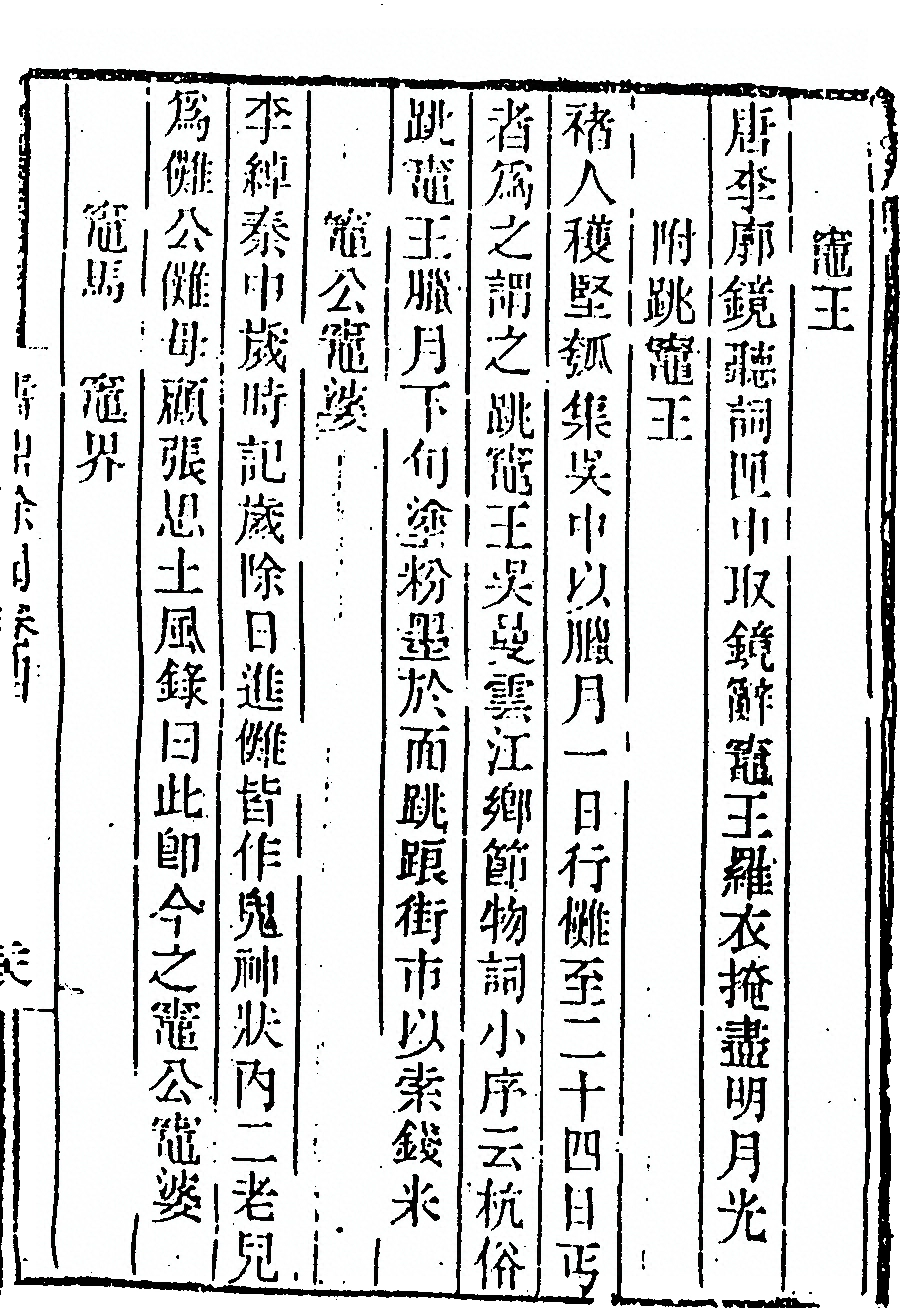 竈王
唐李廓鏡聽詞匣中取鏡辭竈王羅衣掩盡明月光
附跳竈王
褚人穫堅瓠集吳中以臘月一日行儺至二十四日丐
者爲之謂之跳竈王吳曼雲江鄉節物詞小序云杭俗
跳竈王臘月下旬塗粉墨於面跳踉街市以索錢米
竈公竈婆
李綽秦中歲時記歲除日進儺皆作鬼神狀內二老兒
爲儺公儺母顧張思土風錄曰此卽今之竈公竈婆
竈馬　竈界